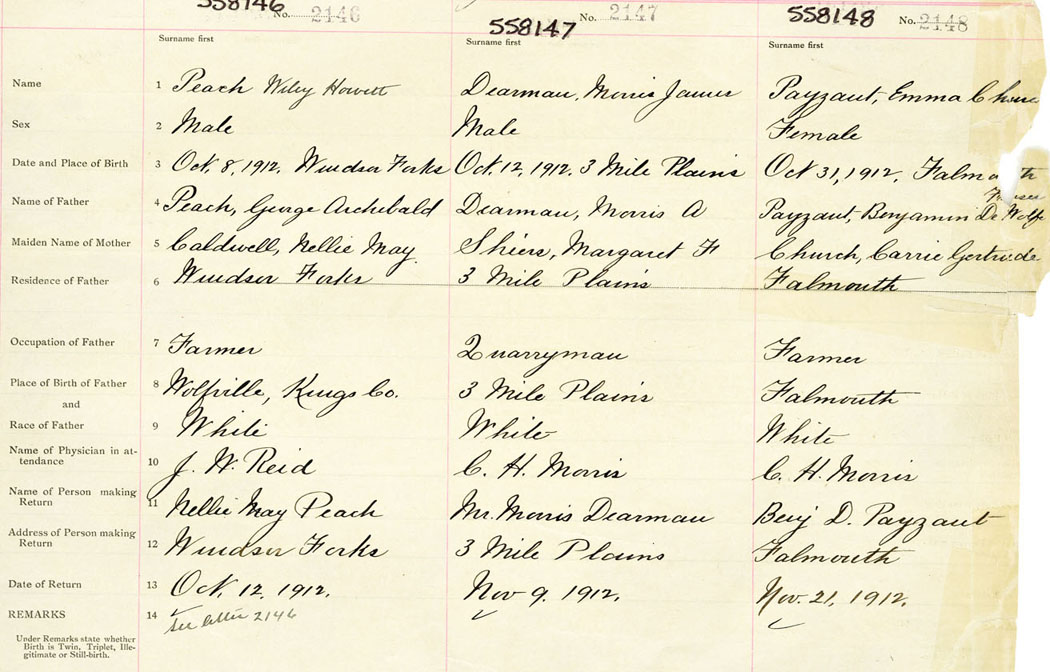 558146 No. 2146
558147 No. 2147
558148 No. 2148
Surname first Surname first Surname first
Name 1 Peach Wiley Howitt Dearman, Morris James Payzant, Emma Church
Sex 2 Male Male Female
Date and Place of Birth 3 Oct. 8, 1912, Windsor Forks Oct. 12, 1912. 3 Mile Plains Oct 31, 1912, Falmouth
Name of Father 4 Peach, George Archibald Dearman, Morris A Payzant, Benjamin De Wolfe
Maiden Name of Mother 5 Caldwell, Nellie May Shiers, Margaret F Church, Carrie Gertrude
Residence of Father 6 Windsor Forks 3 Mile Plains Falmouth
Occupation of Father 7 Farmer Quarryman Farmer
Place of Birth of Father 8 Wolfville, Kings Co. 3 Mile Plains Falmouth
and
Race of Father 9 White White White
Name of Physician in at-
tendance 10 J. W. Reid C. H. Morris C. H. Morris
Name of Person making
Return 11 Nellie May Peach Mr. Morris Dearman Benj D. Payzant
Address of Person making
Return 12 Windsor Forks 3 Mile Plains Falmouth
Date of Return 13 Oct. 12, 1912. Nov 9. 1912. Nov. 21, 1912.
REMARKS 14 See letter 2146
Under Remarks state whether
Birth is Twin, Triplet, Ille-
gitimate or Still-birth.